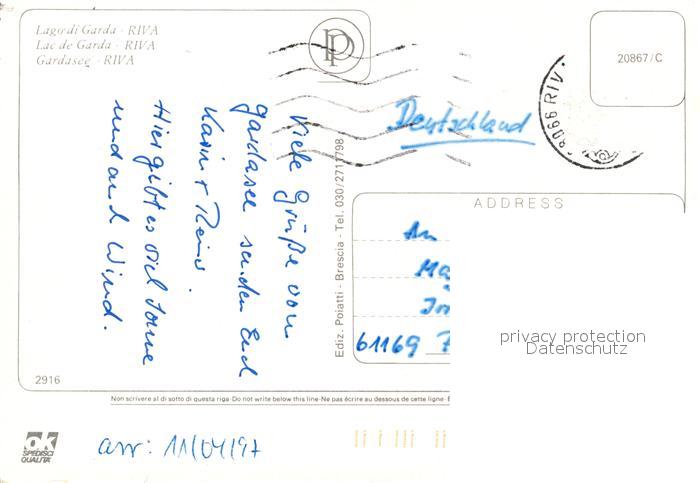 Lago di Garda · RIVA
Lac de Garda · RIVA
Gardasee · RIVA
20867/C
38066 RIV
Deutschland
Viele Grüße vom
Gardasee senden Euch
Karin + Reino.
Hier gibt es viel Sonne
und auch Wind.
Ediz. Poiatti - Brescia - Tel. 030/2711798
ADDRESS
An
61169 F
privacy protection
Datenschutz
2916
Non scrivere al di sotto di questa riga-Do not write below this line-Ne pas écrire au dessous de cette ligne-
ok
SPEDISCI
QUALITA'
arr: 11/04/97